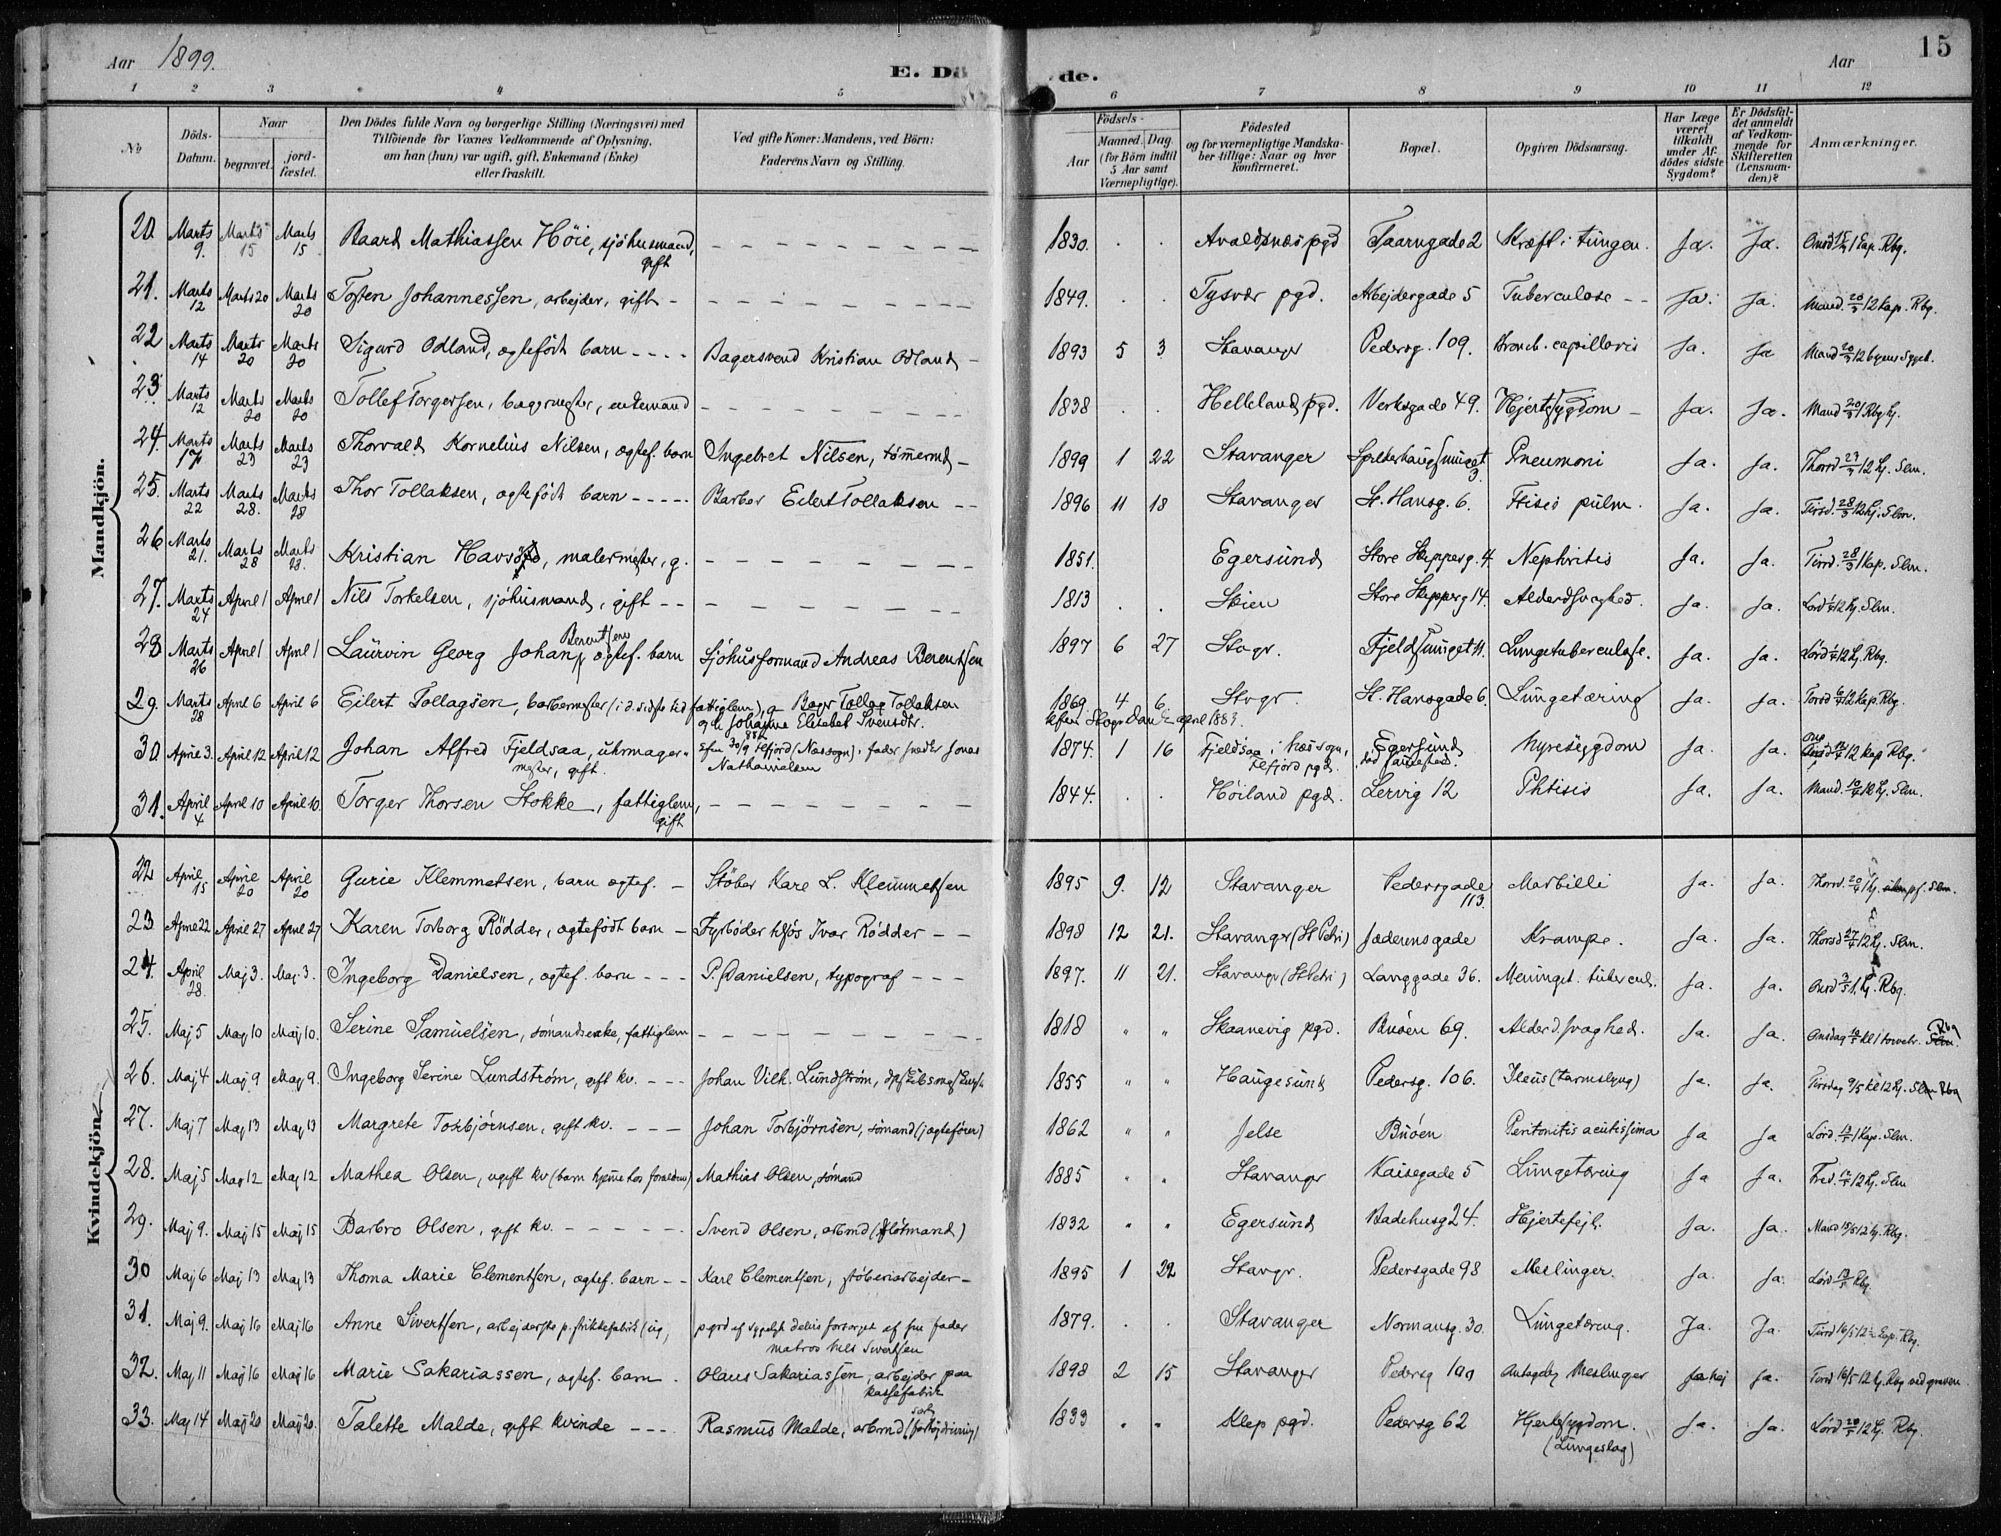 Aar 1899. E. Dö de. Aar 15
1 2 3 4 5 6 7 8 9 10 11 12
No
Döds-Datum.
Naar
begravet.
jord-fæstet.
Den Dödes fulde Navn og borgerlige Stilling (Næringsvei) med
Tilföiende for Voxnes Vedkommende af Oplysning,
om han (hun) var ugift, gift, Enkemand (Enke)
eller fraskilt.
Ved gifte Koner: Mandens, ved Börn:
Faderens Navn og Stilling.
Födsels-
Aar
Maaned. Dag.
(for Börn indtil
5 Aar samt
Værnepligtige).
Födested
og for værnepligtige Mandska-
ber tillige: Naar og hvor
konfirmeret.
Bopæl.
Opgiven Dödsaarsag.
Har Læge
været
tilkaldt
under Af-
dödes sidste
Sygdom?
Er Dödsfal-
det anmeldt
af Vedkom-
mende for
Skifteretten
(Lensman-
den)?
Anmærkninger.
Mandkjön.
20. Marts 9. Marts 15 Marts 15 Baard Mathiassen Höie, sjöhusmand, gift 1830. Avaldsnæs pgd Taarngade 2 Kræft i tungen. Ja. Ja. Onsd 15/3 1 Kap. Rbg.
21. Marts 12 Marts 20 Marts 20 Tosten Johannessen, arbejder, gift 1849. Tysvær pgd. Arbejdergade 5 Tuberculose Ja. Ja. Mand. 20/3 12 Kap. Rbg.
22 Marts 14 Marts 20 Marts 20 Sigurd Odland, egtefödt barn Bagersvend Kristian Odland 1893 5 3 Stavanger Pedersg. 109. Bronch. capillaris Ja. Ja Mand 20/3 12 byens Sygeh.
23. Marts 12 Marts 20 Marts 20 Tollef Torgersen, bagermester, enkemand 1838 Helleland pgd. Verksgade 49. Hjertesygdom Ja. Ja. Mand 20/3 1 Rbg kj.
24. Marts 17 Marts 23 Marts 23 Thorvald Kornelius Nilsen, egtef. barn Ingebret Nilsen, tömermd 1899 1 22 Stavanger Spilderhaugsmuget 3. Pneumoni Ja. Ja. Thorsd 23/3 12 kj. Slm.
25. Marts 22 Marts 28. Marts 28 Thor Tollaksen, egtefödt barn Barber Eilert Tollaksen 1896 11 18 Stavanger St. Hansg. 6. Ftisis pulm. Ja. Ja. Tirsd. 28/3 12 kj. Slm.
26 Marts 21. Marts 28 Marts 28. Kristian Havsö, malermester, g. 1851. Egersund Store Skipperg. 4. Nephritis Ja. Ja. Tirsd. 28/3 1 Kap. Slm.
27. Marts 24 April 1 April 1 Nils Torkelsen, sjöhusmand, gift 1813 Skien Store Skipperg 14. Alderdsvaghed. Ja. Ja. Lörd 1/4 12 kj. Slm.
28 Marts 26 April 1 April 1 Laurvin Georg Johan Berentsen egtef. barn Sjöhusformand Andreas Berentsen 1897 6 27 Stvgr. Fjeldsmuget 11. Lungetuberculose. Ja. Ja. Lörd 1/4 12 kj. Rbg.
29. Marts 28 April 6 April 6 Eilert Tollagsen, barbermester (i d. sidste tid fattiglem), g Bager Tollag Tollaksen og h. Johanna Elisabet Svensdtr. 1869. 4 6. Stvgr. St. Hansgade 6. Lungetæring Ja. Ja. Torsd 6/4 12 Kap. Rbg.
Kfm Stvgr Dom 2 april 1883.
30 April 3. April 12 April 12 Johan Alfred Fjeldsaa, uhrmager-mester, gift. fader smed Jonas Nathanielsen 1874. 1 16 Fjeldsaa i Næs sogn, Fefjord pgd. Egersund Nyresygdom Ja. Ja. Onsd 12/4 12 Kap Rbg.
31. April 4 April 10 April 10. Torger Thorsen Stokke, fattiglem, gift 1844. Höiland pgd. Lervig 12 Phtisis Ja. Ja. Mand. 10/4 12 kj. Slm.
Kvindekjön.
22 April 15 April 20 April 20 Gurie Klemmetsen, barn egtef. Stöber Karl L. Klemmetsen 1895 9. 12 Stavanger Pedersgade 113. Morbilli Ja. Ja. Thorsd. 20/4 1 kj. Slm.
23 April 22 April 27 April 27 Karen Torborg Rödder, egtefödt barn Fyrböder Ivar Rödder 1898 12 21. Stavanger (St Petri) Jæderensgade Krampe. Ja. Ja. Thorsd 27/4 12 kj. Slm.
24. April 28. Maj 3. Maj 3. Ingeborg Danielsen, egtef. barn P. Danielsen, typograf 1897. 11 21. Stavanger (St Petri) Langgade 36. Meninget. tubercul. Ja. Ja. Onsd 3/5 1. kj. Rbg.
25. Maj 5 Maj 10 Maj 10. Serine Samuelsen, sömandsenke, fattiglem 1818 " " Skaanevig pgd. Buöen 69. Alderd.svaghed. Ja. Ja. Onsdag 10/5 kl 1 Slm. Rbg
26. Maj 4 Maj 9 Maj 9. Ingeborg Serine Lundström, gift kv. Johan Vilh. Lundström, 1855 " " Haugesund Pedersg. 106. Ileus (tarmslyng) Ja. Ja. Tirsdag 9/5 kl 12 kj. Slm Rbg
27. Maj 7 Maj 13 Maj 13 Margrete Torbjörnsen, gift kv. Johan Torbjörnsen, sömand (jagtförer) 1862 " " Jelse Buöen Peritonitis acutissima Ja Ja. Lörd. 13/5 1 Kap. Slm.
28. Maj 5 Maj 12 Maj 12 Mathea Olsen, ugift kv (barn hjemme hos foreldrene) Mathias Olsen, sömand 1885 " " Stavanger Kaisegade 5 Lungetæring Ja Ja. Fred. 12/5 12 kj. Slm
29. Maj 9. Maj 15 Maj 15 Barbro Olsen, gift kv. Svend Olsen, arbmd 1832 " " Egersund Badehusg 24. Hjertefejl. Ja. Ja. Mand 15/5 12 kj. Rbg.
30 Maj 6 Maj 13 Maj 13 Thoma Marie Clementsen, egtef. barn Karl Clementsen, stöberiarbejder 1895 1 22 Stavgr. Pedersgade 98 Meslinger. Ja. Ja. Lörd 13/5 Rbg.
31. Maj 9. Maj 16 Maj 16 Anne Sivertsen, arbejderske p. strikkefabrik (ug, pgrd af sygelighd delvis forsörget af sin fader matros Nels Sivertsen 1879. Stavanger Normansg. 30. Lungetæring. Ja. Ja. Tirsd 16/5 12 Kap. Rbg.
32. Maj 11 Maj 16 Maj 16 Marie Sakariassen, egtef. barn Olaus Sakariassen, arbejder paa kassefabrik 1898 2 15 Stavanger Pedersg 100 Antagelig Meslinger Ja nej Ja. 16/5 12 kj. Rbg ved graven.
33. Maj 14 Maj 20 Maj 20. Talette Malde, gift kvinde Rasmus Malde, arbmd 1833 " " Klep pgd. Pedersg 62 Hjertesygdom. (Lungeslag) Ja. Ja. Lörd 20/5 12 kj. Rbg.